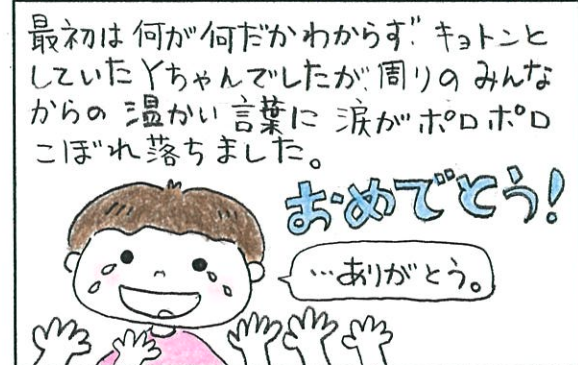 最初は何が何だかわからず、キョトンと
していたYちゃんでしたが、周りのみんな
からの温かい言葉に涙がポロポロ
こぼれ落ちました。
おめでとう!
…ありがとう。